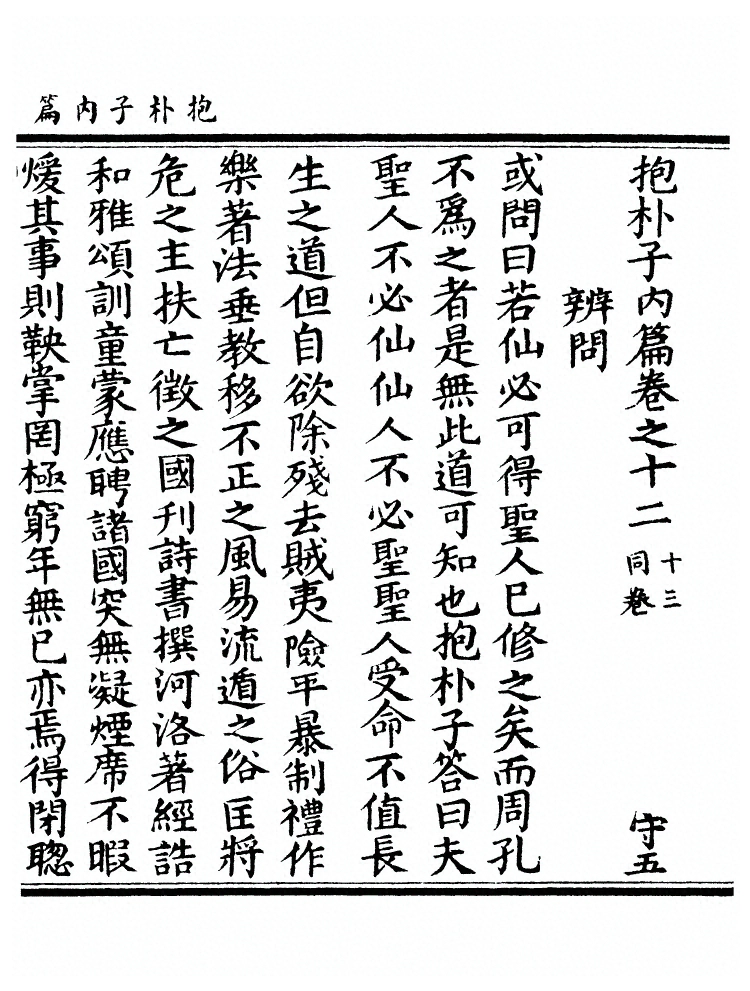 抱朴子内篇
抱朴子内篇卷之十二 十三同卷 守五
辨問
或問曰若仙必可得聖人已修之矣而周孔
不爲之者是無此道可知也抱朴子答曰夫
聖人不必仙仙人不必聖聖人受命不值長
生之道但自欲除殘去賊夷險平暴制禮作
樂著法垂教移不正之風易流遁之俗匡將
危之主扶亡徵之國刊詩書撰河洛著經誥
和雅頌訓童蒙應聘諸國突無凝煙席不暇
煖其事則鞅掌罔極窮年無已亦焉得閉聦